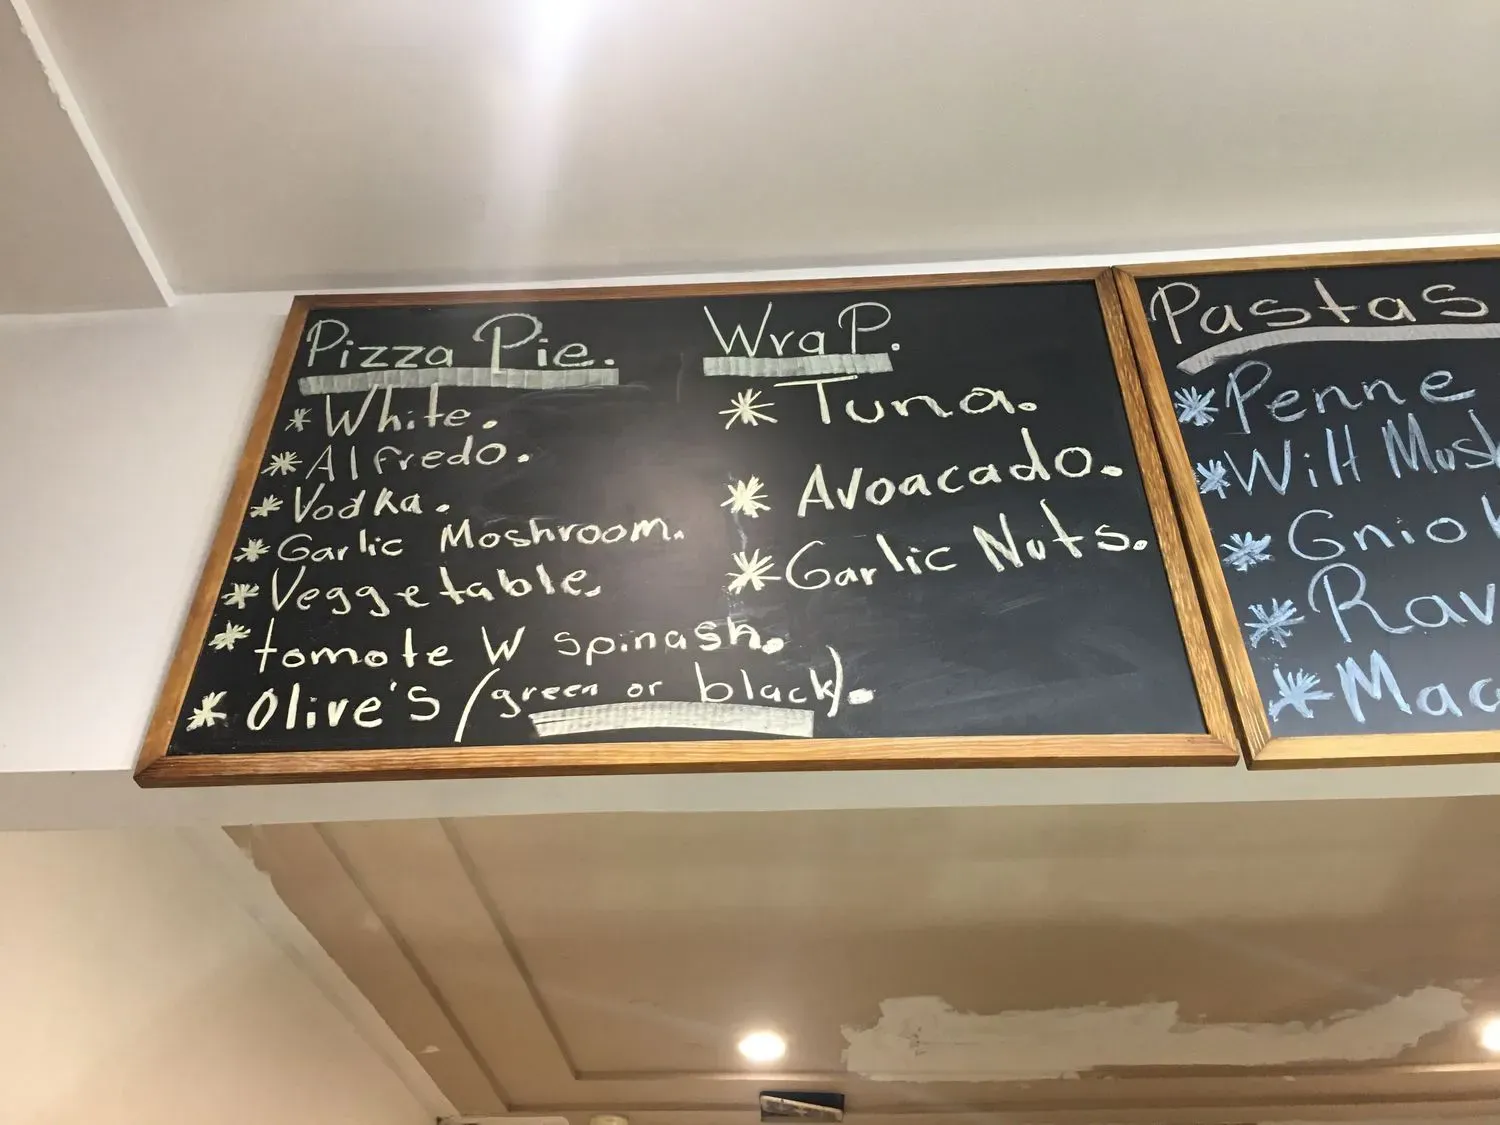 Pizza Pie.
* White.
* Alfredo.
* Vodka.
* Garlic Moshroom.
* Veggetable.
* tomote W spinash.
* Olive's (green or black).
Wrap.
* Tuna.
* Avoacado.
* Garlic Nuts.
Pastas
* Penne
* Wilt Mush
* Gnio
* Rav
* Mac